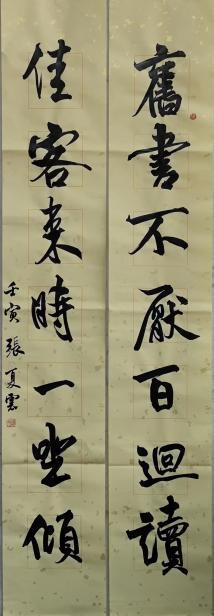 舊書不厭百迴讀
佳客來時一坐傾
壬寅 張夏雲